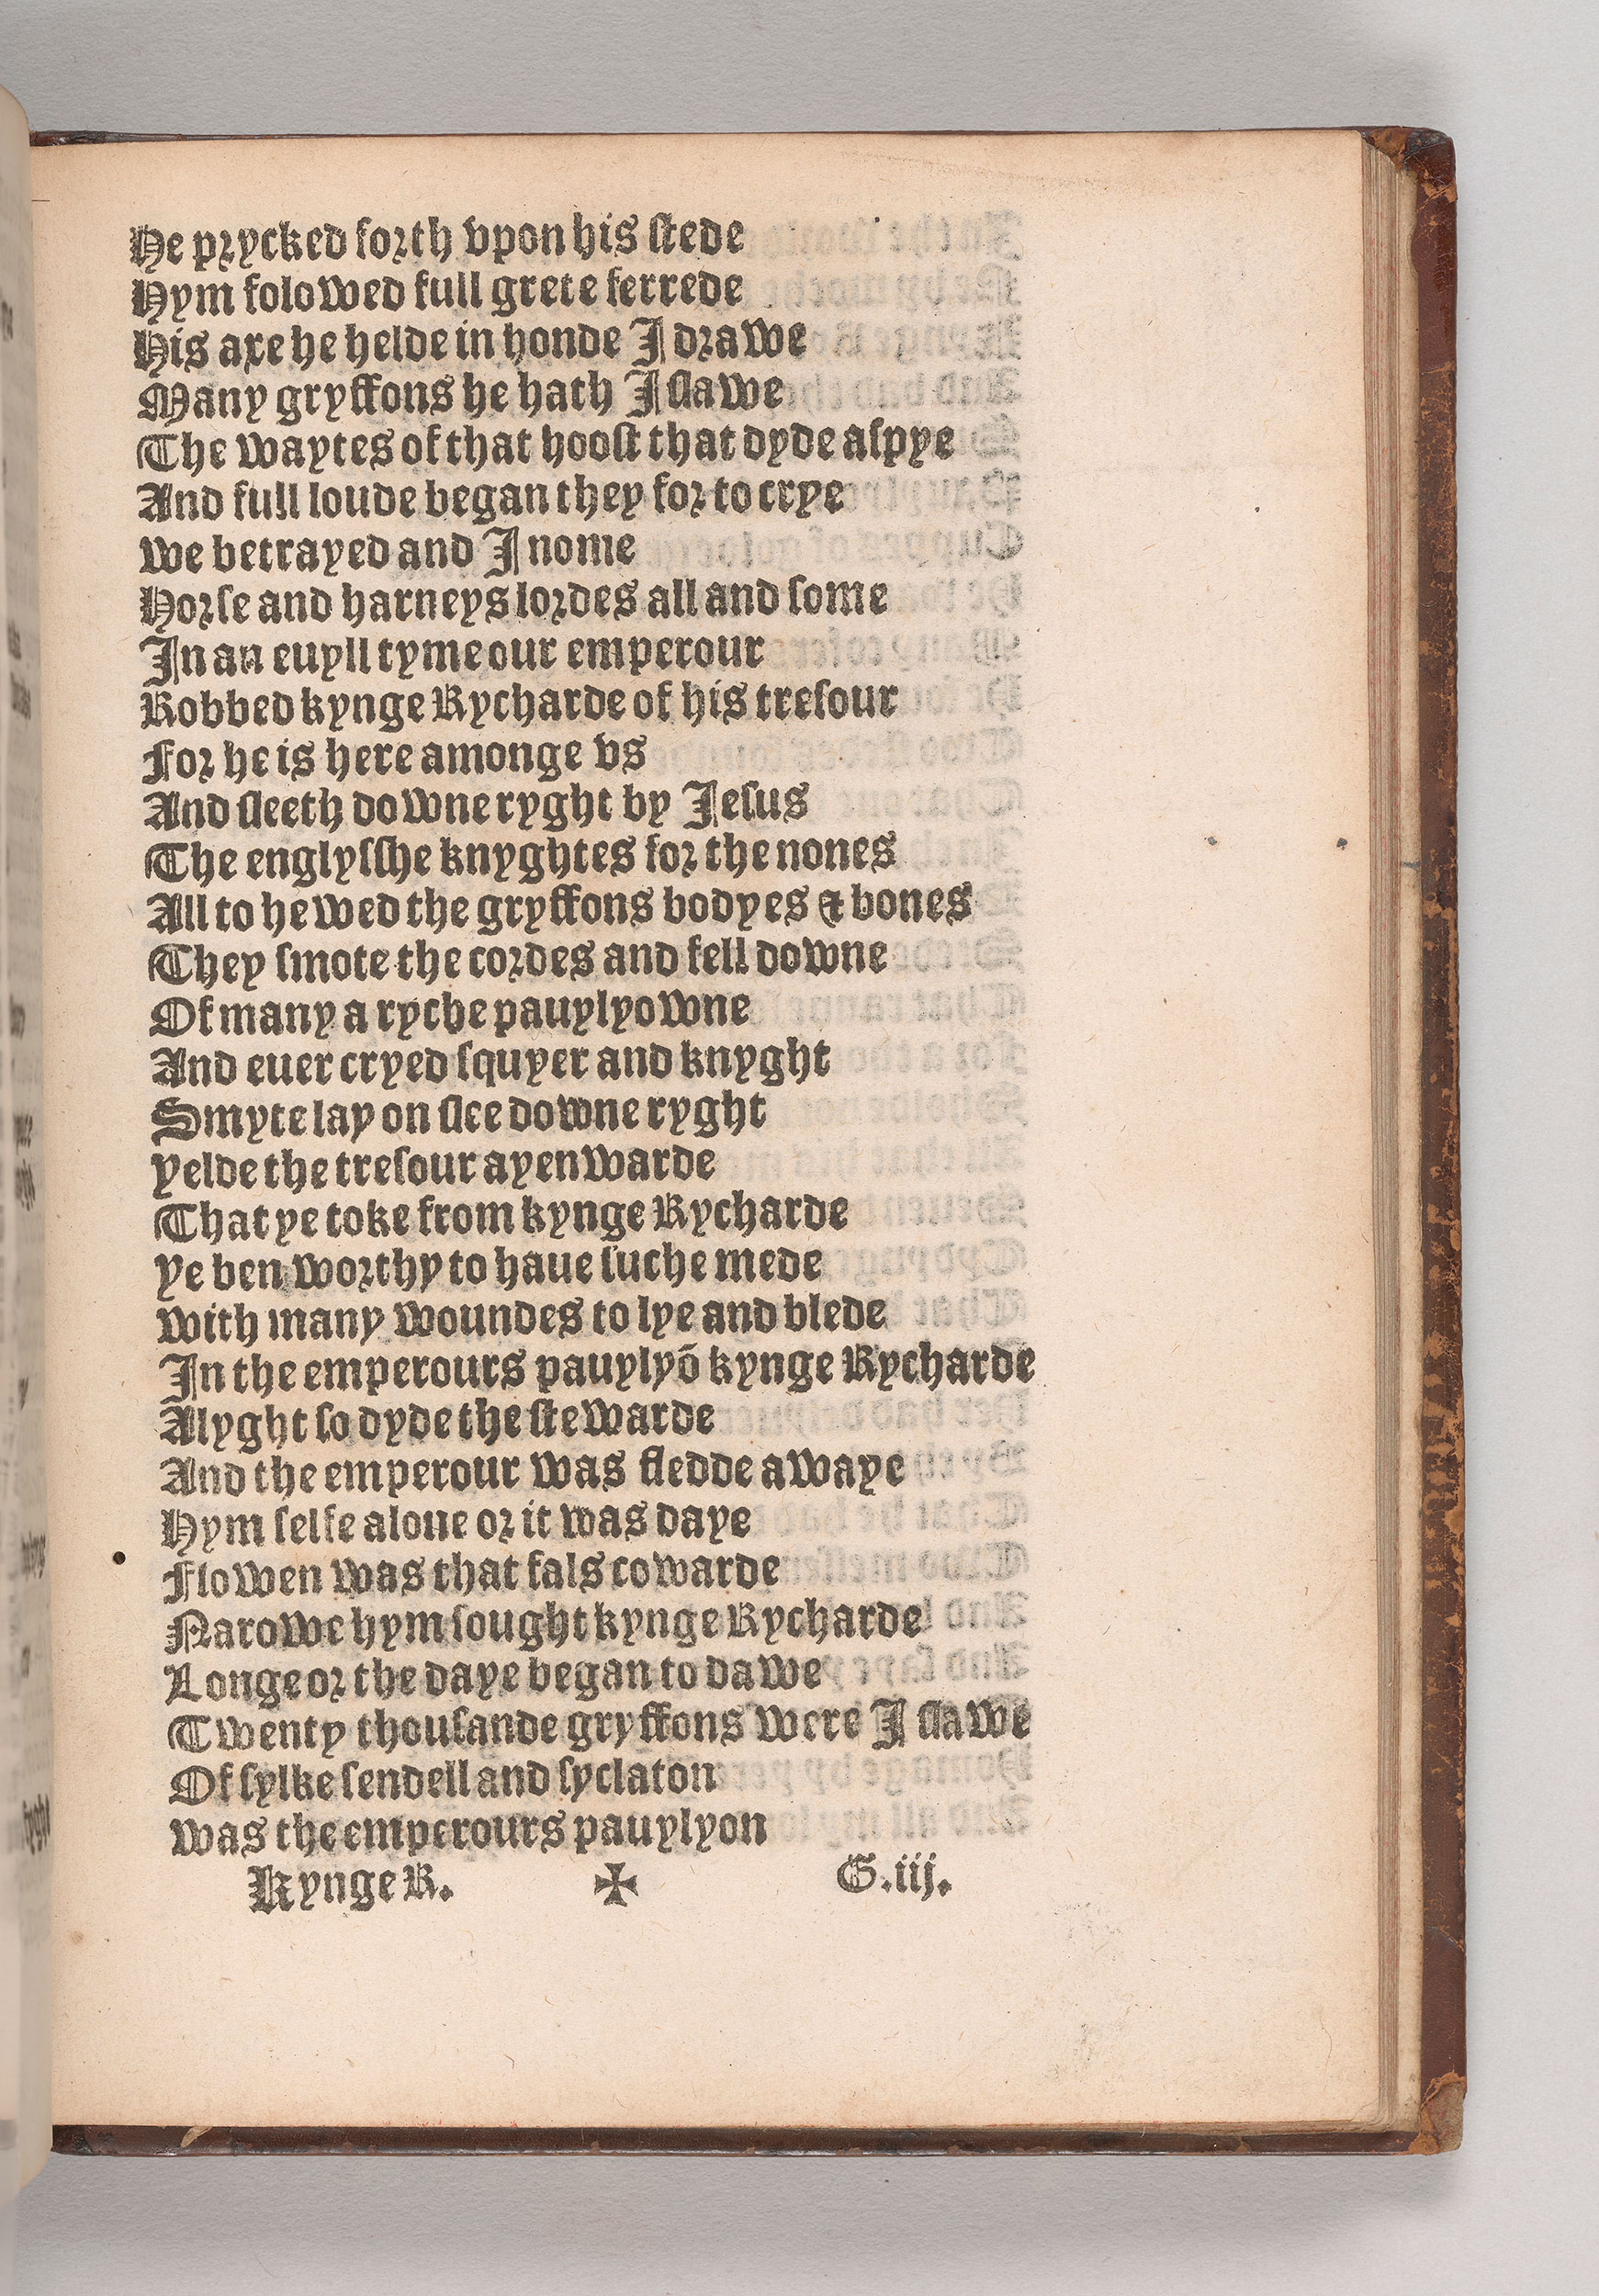 He prycked forth vpon his ſtede
Hym folowed full grete ferrede
His axe he helde in honde I drawe
Many gryffons he hath I ſlawe
The waytes of that hooſt that dyde aſpye
And full loude began they for to crye
we betrayed and I nome
Horſe and harneys lordes all and ſome
In an euyll tyme our emperour
Robbed kynge Rycharde of his treſour
For he is here amonge vs
And ſleeth downe ryght by Ieſus
The englyſſhe knyghtes for the nones
All to hewed the gryffons bodyes & bones
They ſmote the cordes and fell downe
Of many a ryche pauylyowne
And euer cryed ſquyer and knyght
Smyte lay on ſlee downe ryght
yelde the treſour ayenwarde
That ye toke from kynge Rycharde
ye ben worthy to haue ſuche mede
with many woundes to lye and blede
In the emperours pauylyõ kynge Rycharde
Alyght ſo dyde the ſtewarde
And the emperour was fledde awaye
Hym ſelfe alone or it was daye
Flowen was that fals cowarde
Narowe hym ſought kynge Rycharde
Longe or the daye began to dawe
Twenty thouſande gryffons were I ſlawe
Of ſylke ſendell and ſyclaton
was the emperours pauylyon
Kynge R. ✠ G.iij.